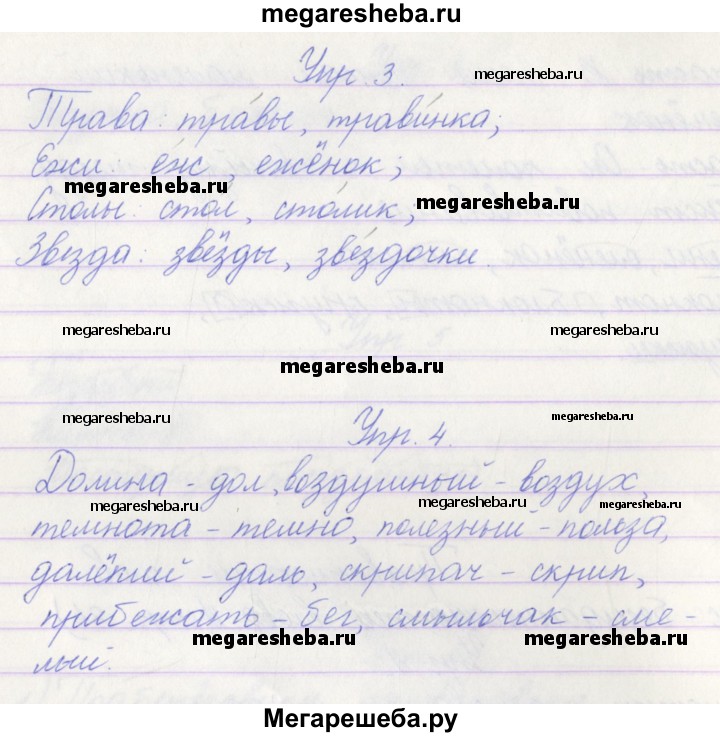 megaresheba.ru
Упр. 3.
megaresheba.ru
Трава: тра́вы, трави́нка;
Ежи: ёж, ежёнок;
megaresheba.ru
Столы: стол, сто́лик;
megaresheba.ru
Звезда: звёзды, звёздочки.
megaresheba.ru
megaresheba.ru
megaresheba.ru
megaresheba.ru
Упр. 4.
megaresheba.ru
Долина - дол, воздушный - воздух,
megaresheba.ru
megaresheba.ru
megaresheba.ru
темнота - темно, полезный - польза,
далёкий - даль, скрипач - скрип,
прибежать - бег, смыльчак - сме-
megaresheba.ru
megaresheba.ru
лый.
Мегарешеба.ру